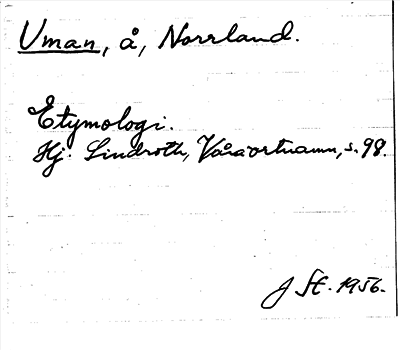 Uman, å, Norrland.
Etymologi.
Hj. Lindroth, Våra ortnamn, s. 98.
J St. 1956.